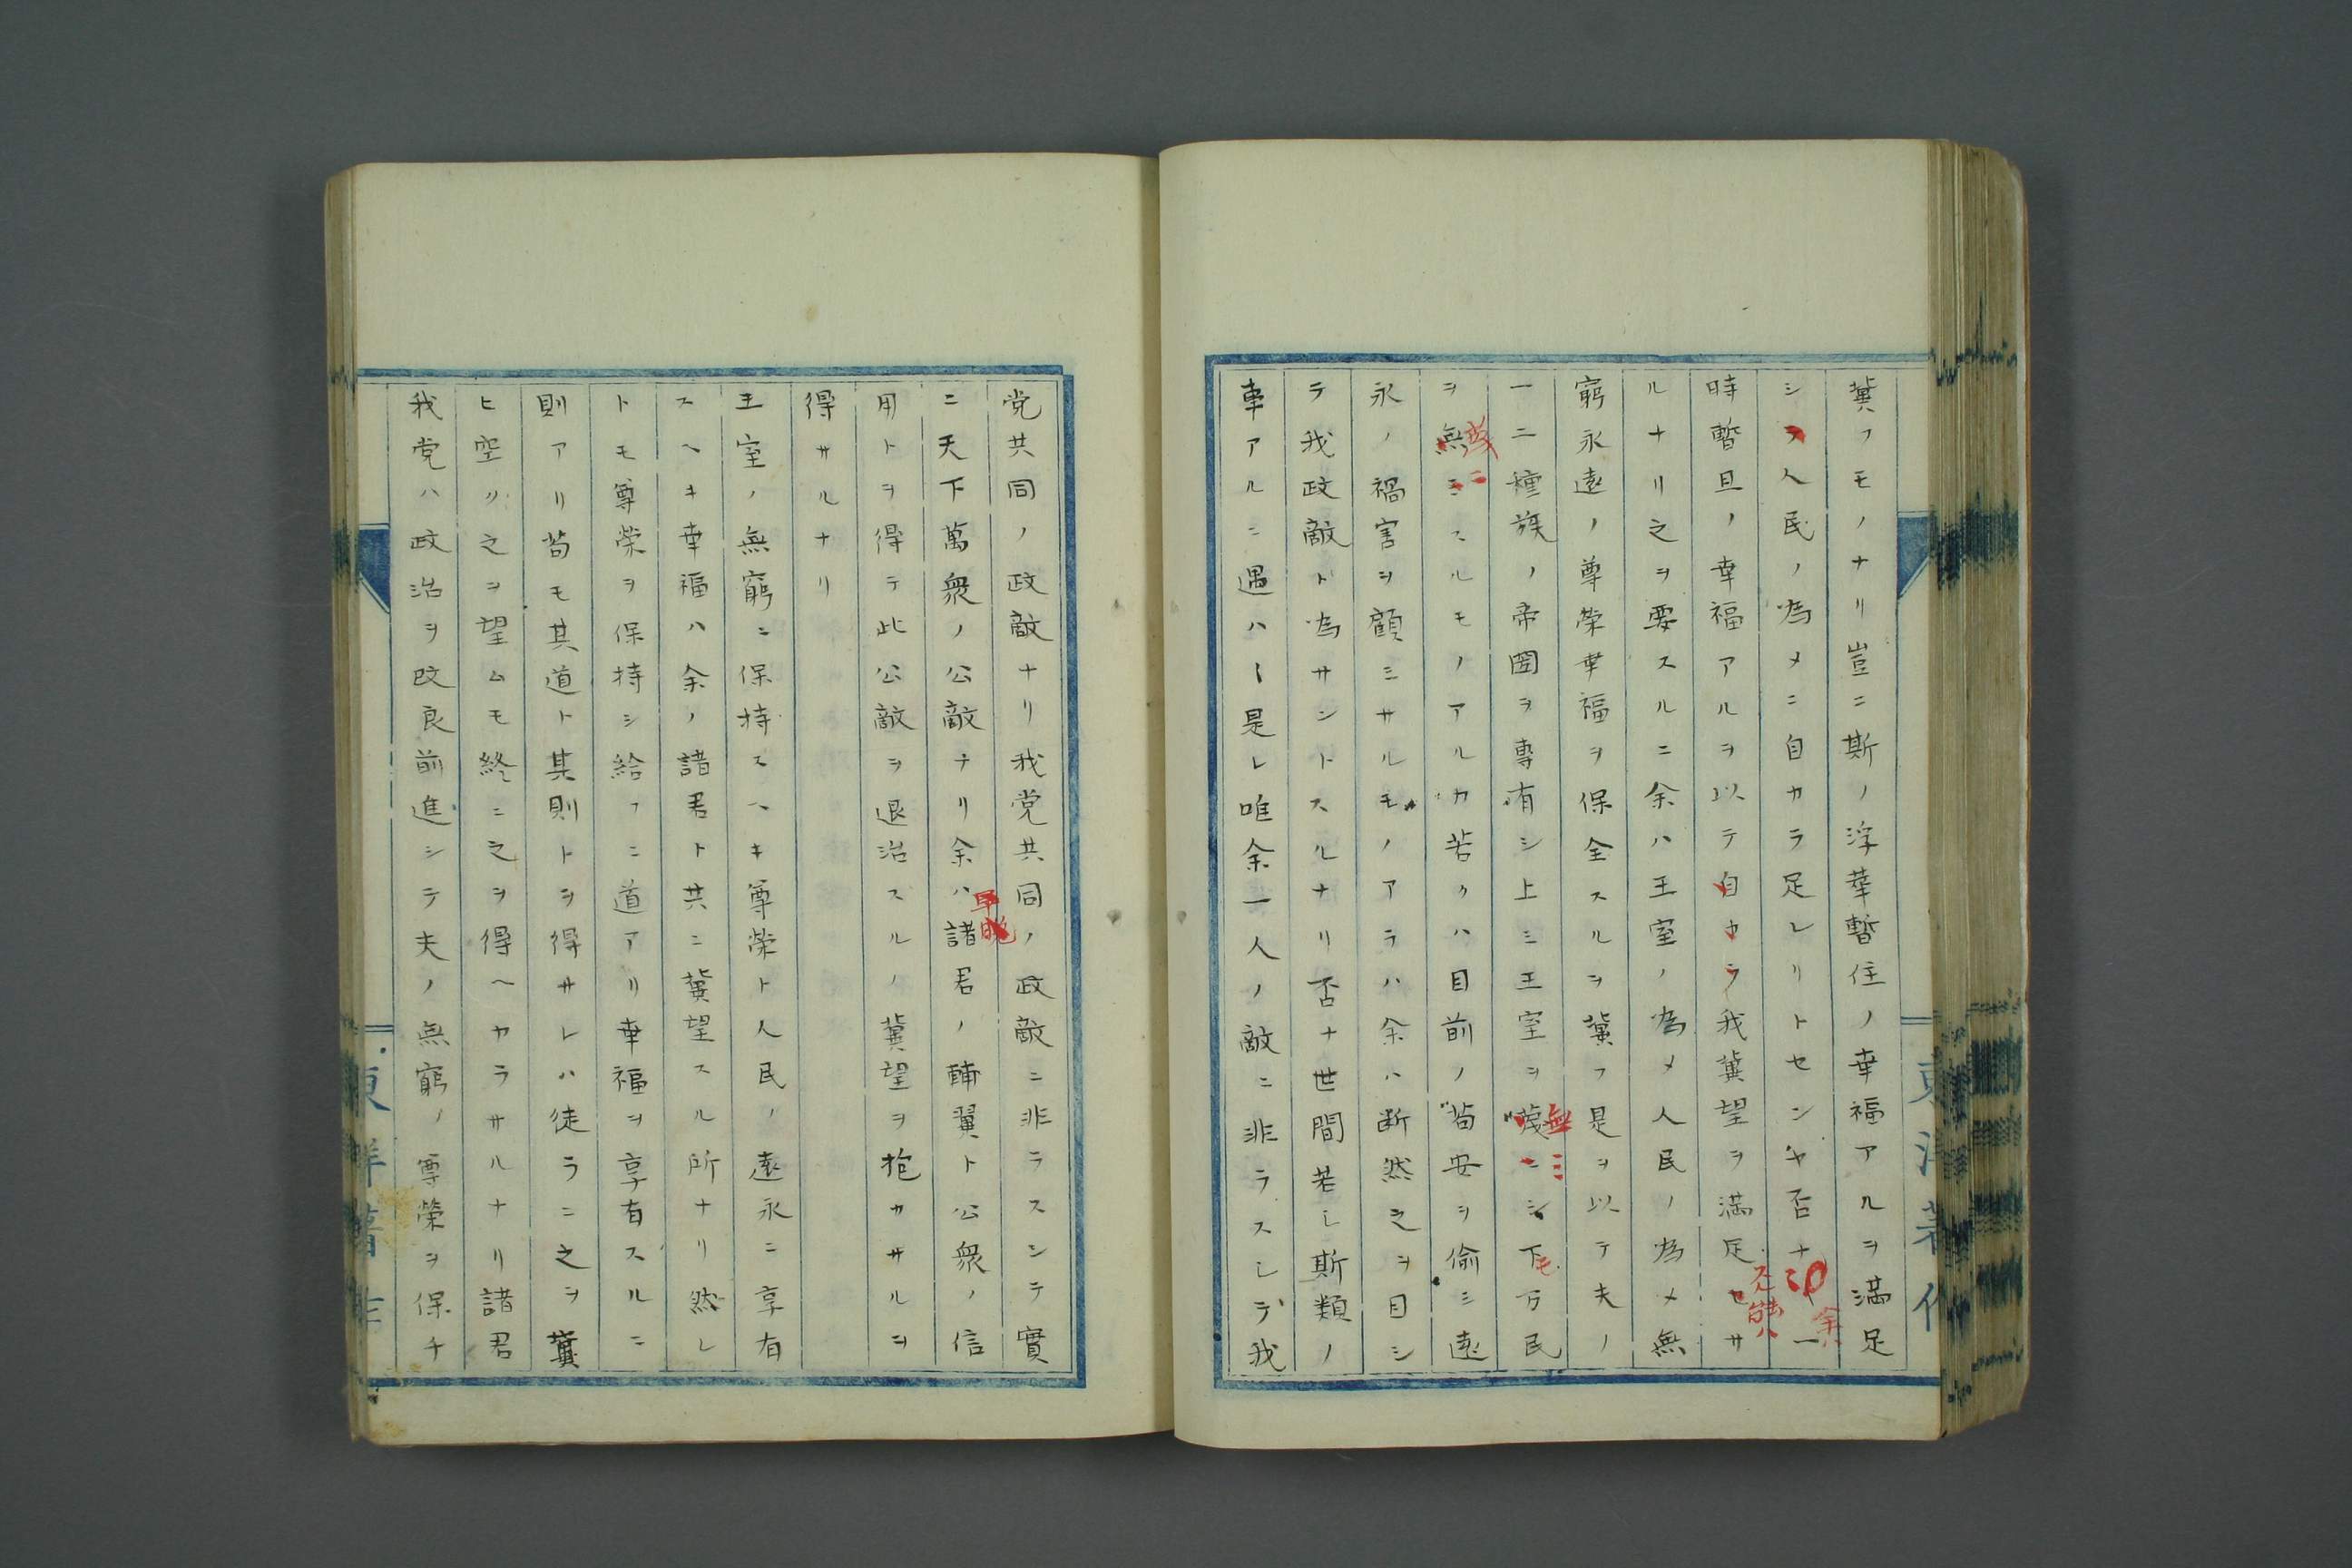 冀フモノナリ豈ニ斯ノ浮華暫住ノ幸福アルヲ満足
シテ人民ノ為メニ自カラ足レリトセンヤ否ナ余ハ一
時暫且ノ幸福アルヲ以テ自カラ我冀望ヲ満足セサ
ス能ハ
ルナリ之ヲ要スルニ余ハ王室ノ為メ人民ノ為メ無
窮永遠ノ尊榮幸福ヲ保全スルヲ冀フ是ヲ以テ夫ノ
一二種族ノ帝圏ヲ専有シ上ミ王室ヲ蔑ニシ下万民
無ミ
モ
ヲ無ミスルモノアルカ若クハ目前ノ苟安ヲ偷ミ遠
蔑ニ
永ノ禍害ヲ顧ミサルモノアラハ余ハ断然之ヲ目シ
テ我政敵ト為サントスルナリ否ナ世間若シ斯類ノ
車アルニ遇ハヽ是レ唯余一人ノ敵ニ非ラスシテ我
党共同ノ政敵ナリ我党共同ノ政敵ニ非ラスシテ實
ニ天下萬衆ノ公敵ナリ余ハ諸君ノ輔翼ト公衆ノ信
早晩
用トヲ得テ此公敵ヲ退治スルノ冀望ヲ抱カサルヲ
得サルナリ
王室ノ無窮ニ保持スヘキ尊榮ト人民ノ遠永ニ享有
スヘキ幸福ハ余ノ諸君ト共ニ冀望スル所ナリ然レ
トモ尊榮ヲ保持シ給フニ道アリ幸福ヲ享有スルニ
則アリ苟モ其道ト其則トヲ得サレハ徒ラニ之ヲ冀
ヒ空リ之ヲ望ムモ終ニ之ヲ得ヘカラサルナリ諸君
我党ハ政治ヲ改良前進シテ夫ノ無窮ノ尊榮ヲ保チ
東洋著作
東洋著作